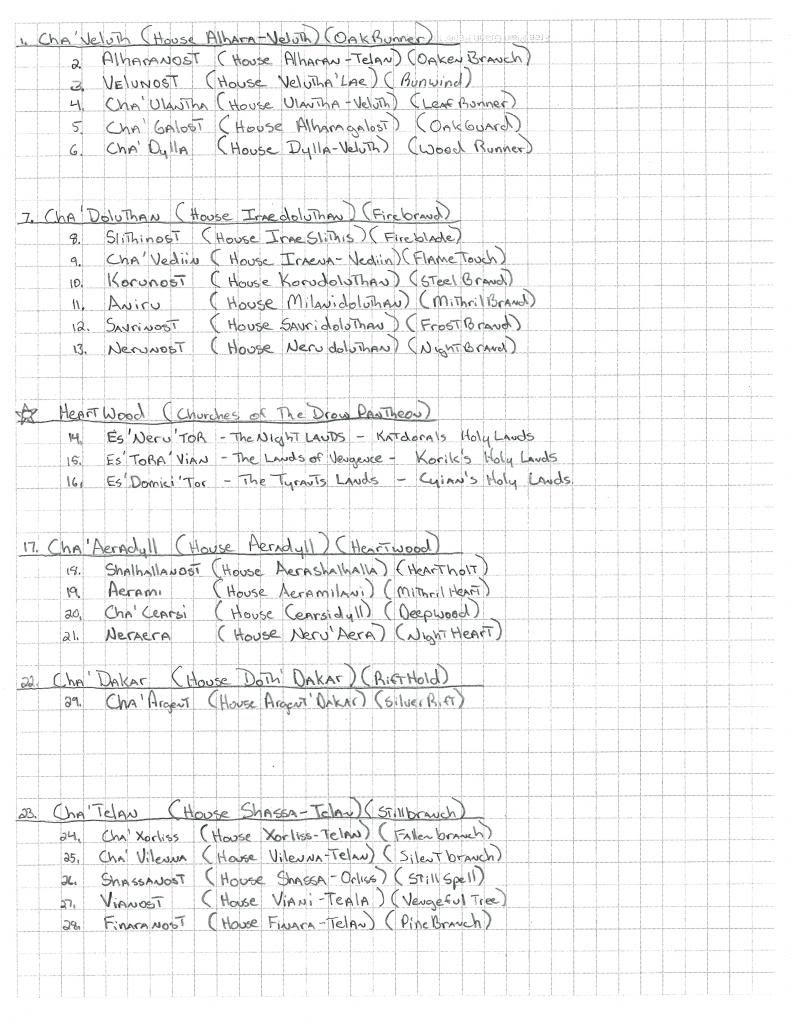 1. Cha'Veluth (House Alhara-Veluth) (OakRunner)
2. Alharanost (House Alharan-Telan) (Oaken Branch)
3. Velunost (House Velutha'Lae) (Runwind)
4. Cha'Ulantha (House Ulantha-Veluth) (Leaf Runner)
5. Cha'Galost (House Alharagalost) (OakGuard)
6. Cha'Dylla (House Dylla-Veluth) (Wood Runner)
7. Cha'Doluthan (House Iraedoluthan) (Firebrand)
8. Slithinost (House IraeSlithis) (Fireblade)
9. Cha'Vediin (House Iraena-Vediin) (FlameTouch)
10. Korunost (House Korudoluthan) (Steel Brand)
11. Aniru (House Milanidoluthan) (Mithril Brand)
12. Saurinost (House Sauridoluthan) (FrostBrand)
13. Nerunost (House Nerudoluthan) (NightBrand)
HeartWood (Churches of The Drow Pantheon)
14. Es'Neru'Tor - The Night Lands - Katdoral's Holy Lands
15. Es'Tora'Vian - The Lands of Vengence - Korik's Holy Lands
16. Es'Domici'Tor - The Tyrants Lands - Cyian's Holy Lands.
17. Cha'Aeradyll (House Aeradyll) (Heartwood)
18. Shalhallanost (House Aerashalhalla) (Heartholt)
19. Aerami (House Aeramilani) (Mithril Heart)
20. Cha'Cearsi (House Cearsidyll) (Deepwood)
21. Neraera (House Neru'Aera) (Night Heart)
22. Cha'Dakar (House Doth'Dakar) (Rift Hold)
29. Cha'Argent (House Argent'Dakar) (Silver Rift)
23. Cha'Telan (House Shassa-Telan) (Stillbranch)
24. Cha'Xorliss (House Xorliss-Telan) (Fallen branch)
25. Cha'Vilenna (House Vilenna-Telan) (Silent branch)
26. Shassanost (House Shassa-Orliss) (Still Spell)
27. Vianost (House Viani-Teala) (Vengeful Tree)
28. Finaranost (House Finara-Telan) (Pine Branch)